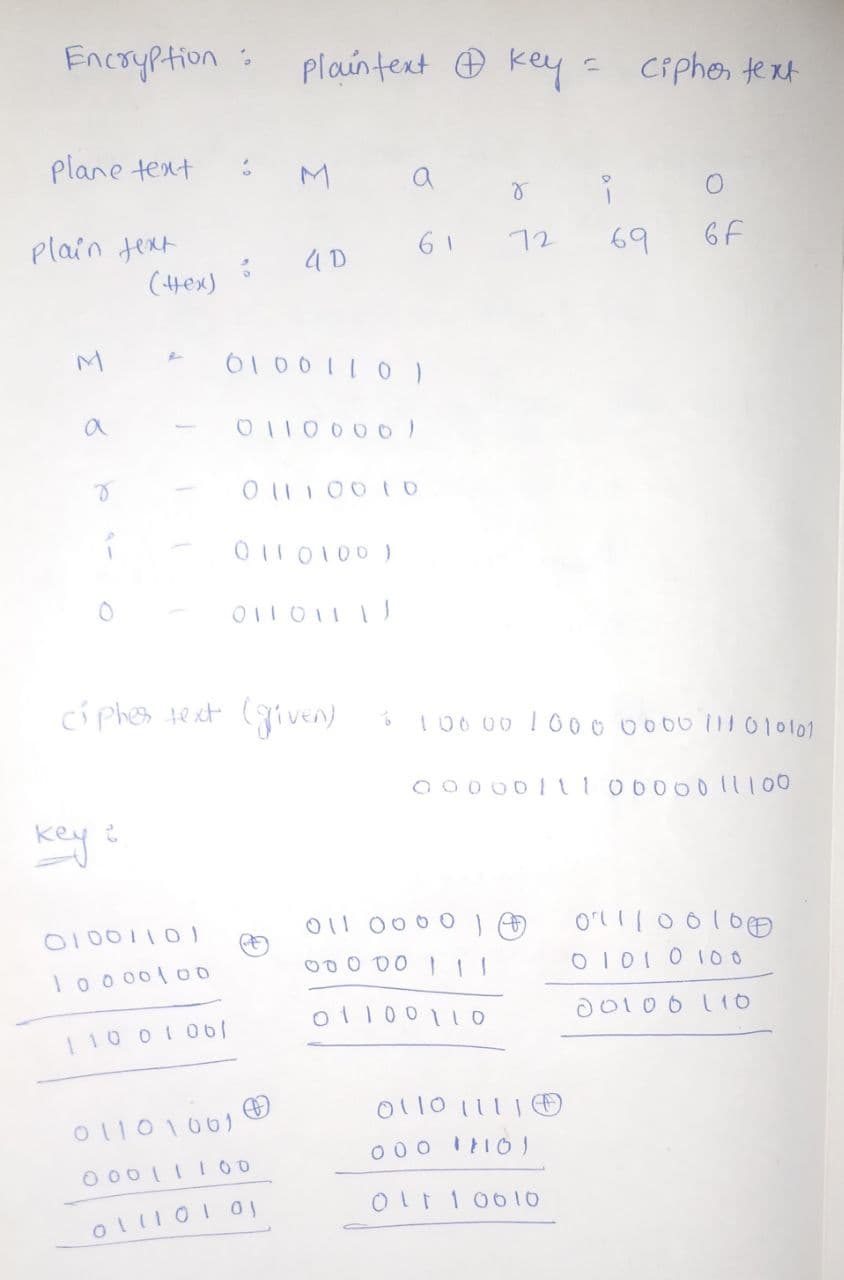 Encryption : plaintext ⊕ key = cipher text
plane text : M a r i o
plain text (Hex) : 4D 61 72 69 6F
M - 01001101
a - 01100001
r - 01110010
i - 01101001
o - 01101111
cipher text (given) : 1000010000000111010101
000001111 0000011100
key :
01001101 ⊕ 01100001 ⊕ 01110010 ⊕
10000100 00000111 01010100
11001001 01100110 00100110
01101001 ⊕ 01101111 ⊕
00011100 00011101
01110101 01110010